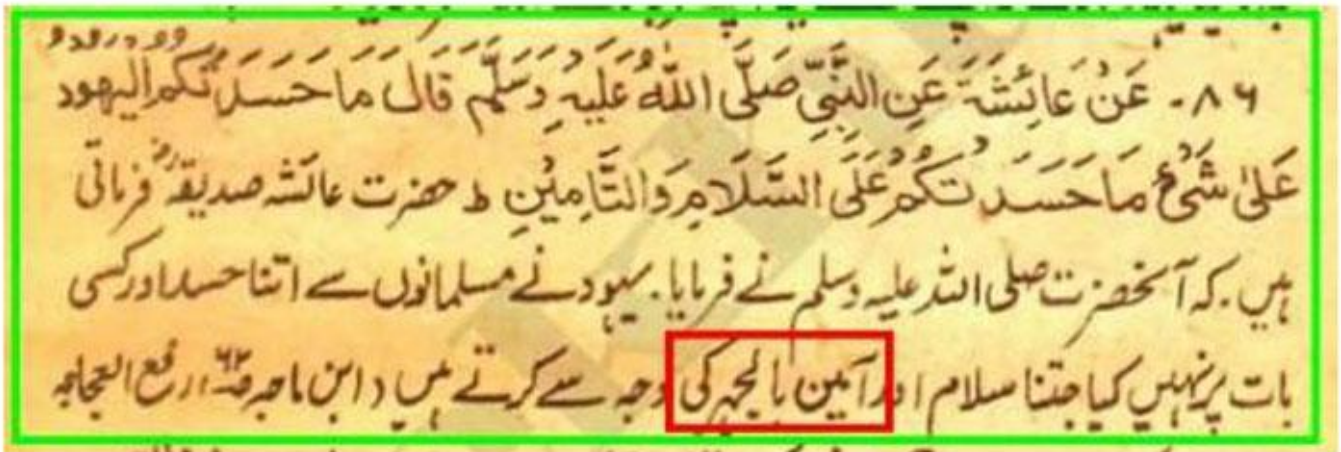 ۸۶۔ عَنْ عَائِشَةَ عَنِ النَّبِيِّ صَلَّى اللّٰهُ عَلَيْهِ وَسَلَّمَ قَالَ مَا حَسَدَتْكُمُ الْيَهُودُ
عَلىٰ شَيْءٍ مَا حَسَدَتْكُمْ عَلَى السَّلَامِ وَالتَّامِيْنِ ط حضرت عائشہ صدیقہؓ فرماتی
ہیں۔ کہ آنحضرت صلی اللہ علیہ وسلم نے فرمایا۔ یہود نے مسلمانوں سے اتنا حسد اور کسی
بات پر نہیں کیا جتنا سلام اور آمین بالجہر کی وجہ سے کرتے ہیں (ابن ماجہ رفع العجاجہ